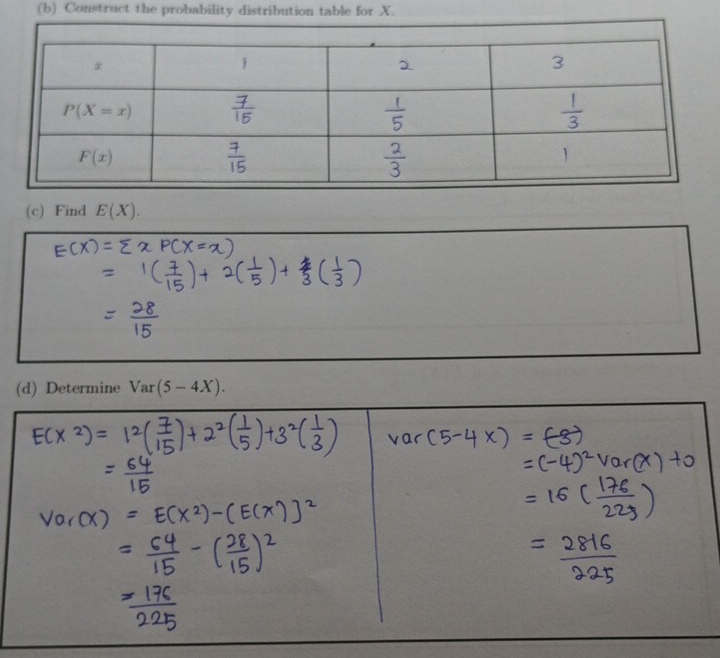 (b) Construct the probability distribution table for X.
x 1 2 3
P(X = x) 7/15 1/5 1/3
F(x) 7/15 2/3 1
(c) Find E(X).
E(X) = Σ x P(X=x)
= 1(7/15) + 2(1/5) + 3(1/3)
= 28/15
(d) Determine Var(5 − 4X).
E(X²) = 1²(7/15) + 2²(1/5) + 3²(1/3)
= 64/15
Var(X) = E(X²) − [E(X)]²
= 64/15 − (28/15)²
= 176/225
var(5-4X) =
= (-4)² Var(X) + 0
= 16 (176/225)
= 2816/225